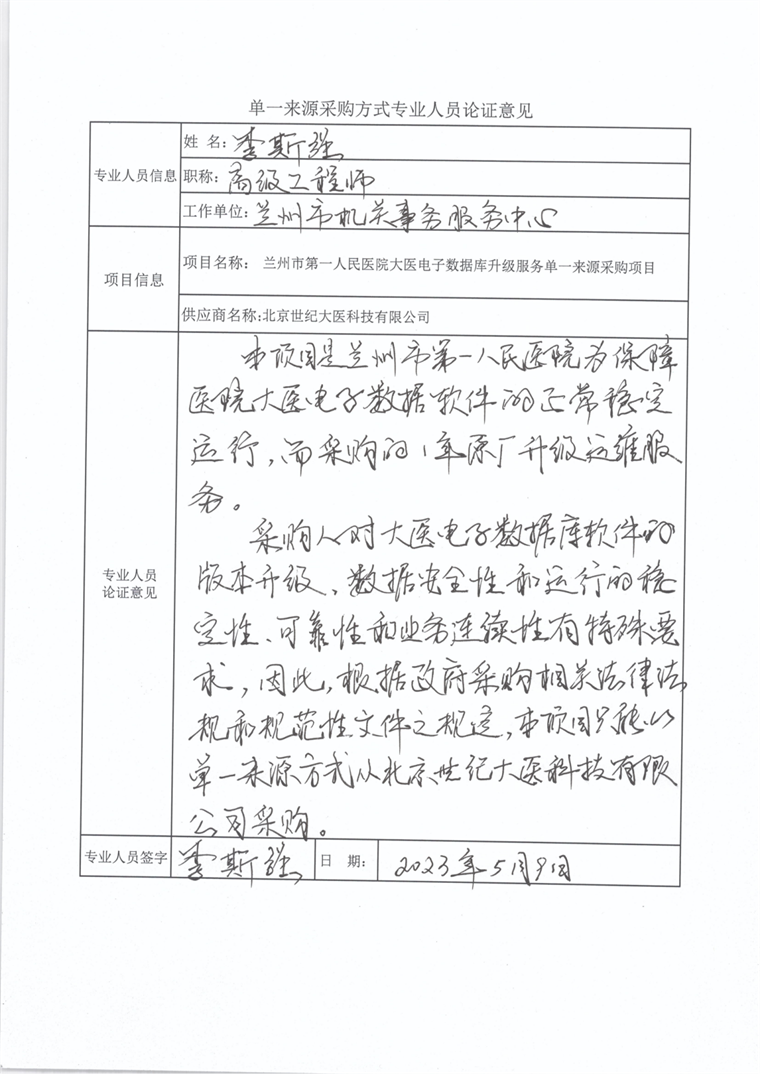 单一来源采购方式专业人员论证意见
专业人员信息
姓 名: 李斯强
职称: 高级工程师
工作单位: 兰州市机关事务服务中心
项目信息
项目名称: 兰州市第一人民医院大医电子数据库升级服务单一来源采购项目
供应商名称:北京世纪大医科技有限公司
专业人员
论证意见
本项目是兰州市第一人民医院为保障
医院大医电子数据软件的正常稳定
运行,而采购的1年原厂升级运维服
务。
采购人对大医电子数据库软件的
版本升级、数据安全性和运行的稳
定性、可靠性和业务连续性有特殊要
求,因此,根据政府采购相关法律法
规和规范性文件之规定,本项目只能以
单一来源方式从北京世纪大医科技有限
公司采购。
专业人员签字
李斯强
日 期:
2023年5月9日